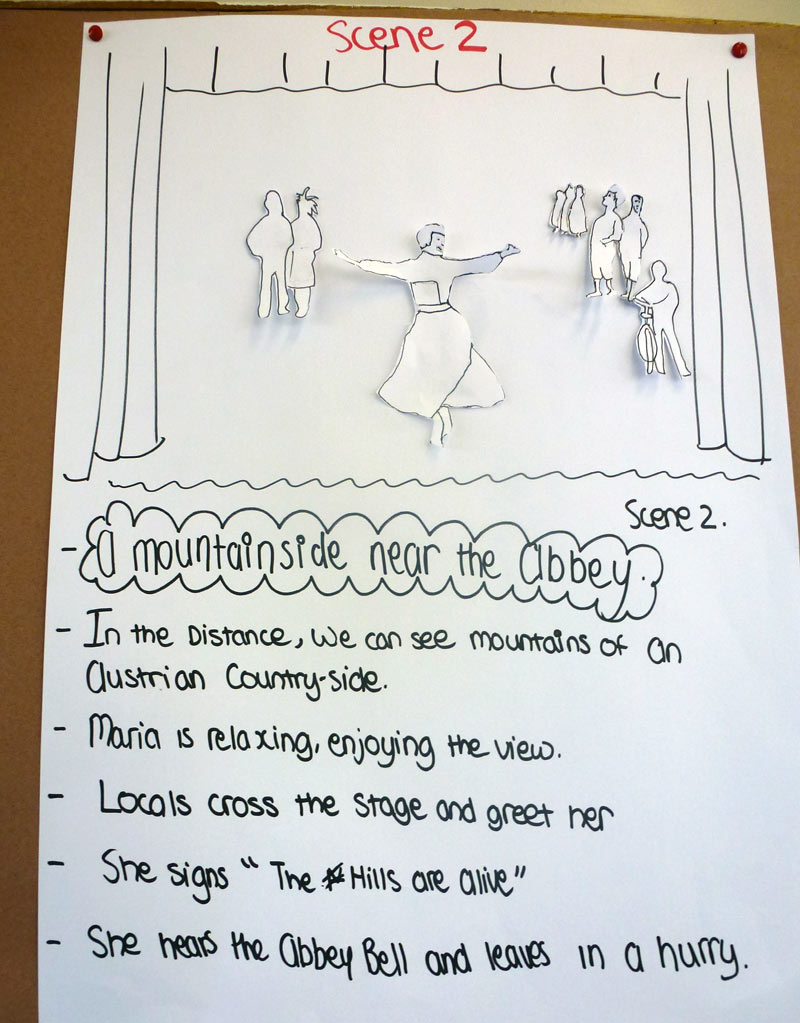 Scene 2
Scene 2.
- A mountainside near the abbey.
- In the Distance, we can see mountains of an
austrian Country-side.
- Maria is relaxing, enjoying the view.
- Locals cross the stage and greet her
- She signs " The Hills are alive"
- She hears the abbey Bell and leaves in a hurry.